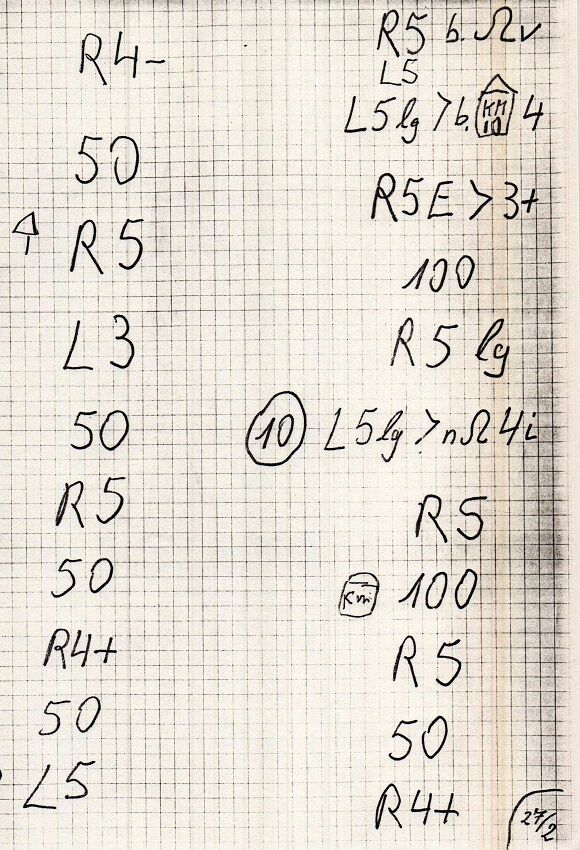 R4-
50
R5
L3
50
R5
50
R4+
50
L5
R5 b. Ωv
L5
L5 lg > b. KM 10 4
R5E > 3+
100
R5 lg
10 L5 lg > n Ω 4i
R5
100
R5
50
R4+
27/2